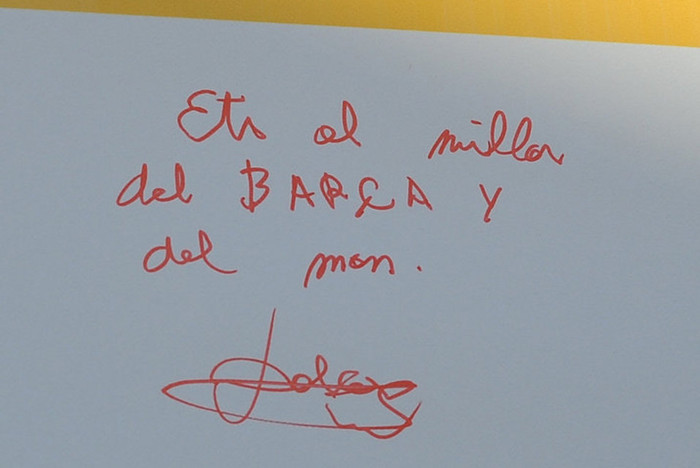 Ets el millor
del BARÇA Y
del mon.